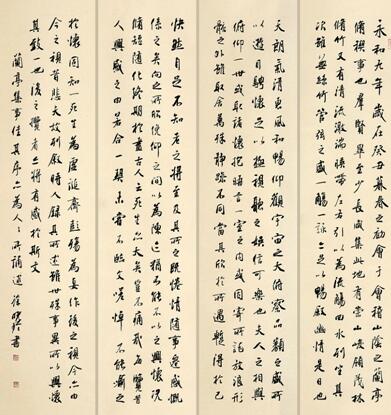 永和九年歲在癸丑暮春之初會于會稽山陰之蘭亭
脩禊事也羣賢畢至少長咸集此地有崇山峻領茂林
脩竹又有清流激湍映帶左右引以為流觴曲水列坐其
次雖無絲竹管弦之盛一觴一詠亦足以暢敘幽情是日也
天朗氣清惠風和暢仰觀宇宙之大俯察品類之盛所
以遊目騁懷足以極視聽之娛信可樂也夫人之相與
俯仰一世或取諸懷抱晤言一室之內或因寄所託放浪形
骸之外雖取舍萬殊靜躁不同當其欣於所遇暫得於己
快然自足不知老之將至及其所之既倦情隨事遷感慨
係之矣向之所欣俛仰之間以為陳迹猶不能不以之興懷況
脩短隨化終期於盡古人云死生亦大矣豈不痛哉每覽昔
人興感之由若合一契未嘗不臨文嗟悼不能喻之
於懷固知一死生為虛誕齊彭殤為妄作後之視今亦由
今之視昔悲夫故列敘時人錄其所述雖世殊事異所以興懷
其致一也後之攬者亦將有感於斯文
蘭亭集事佳其序亦為人之所誦道 書